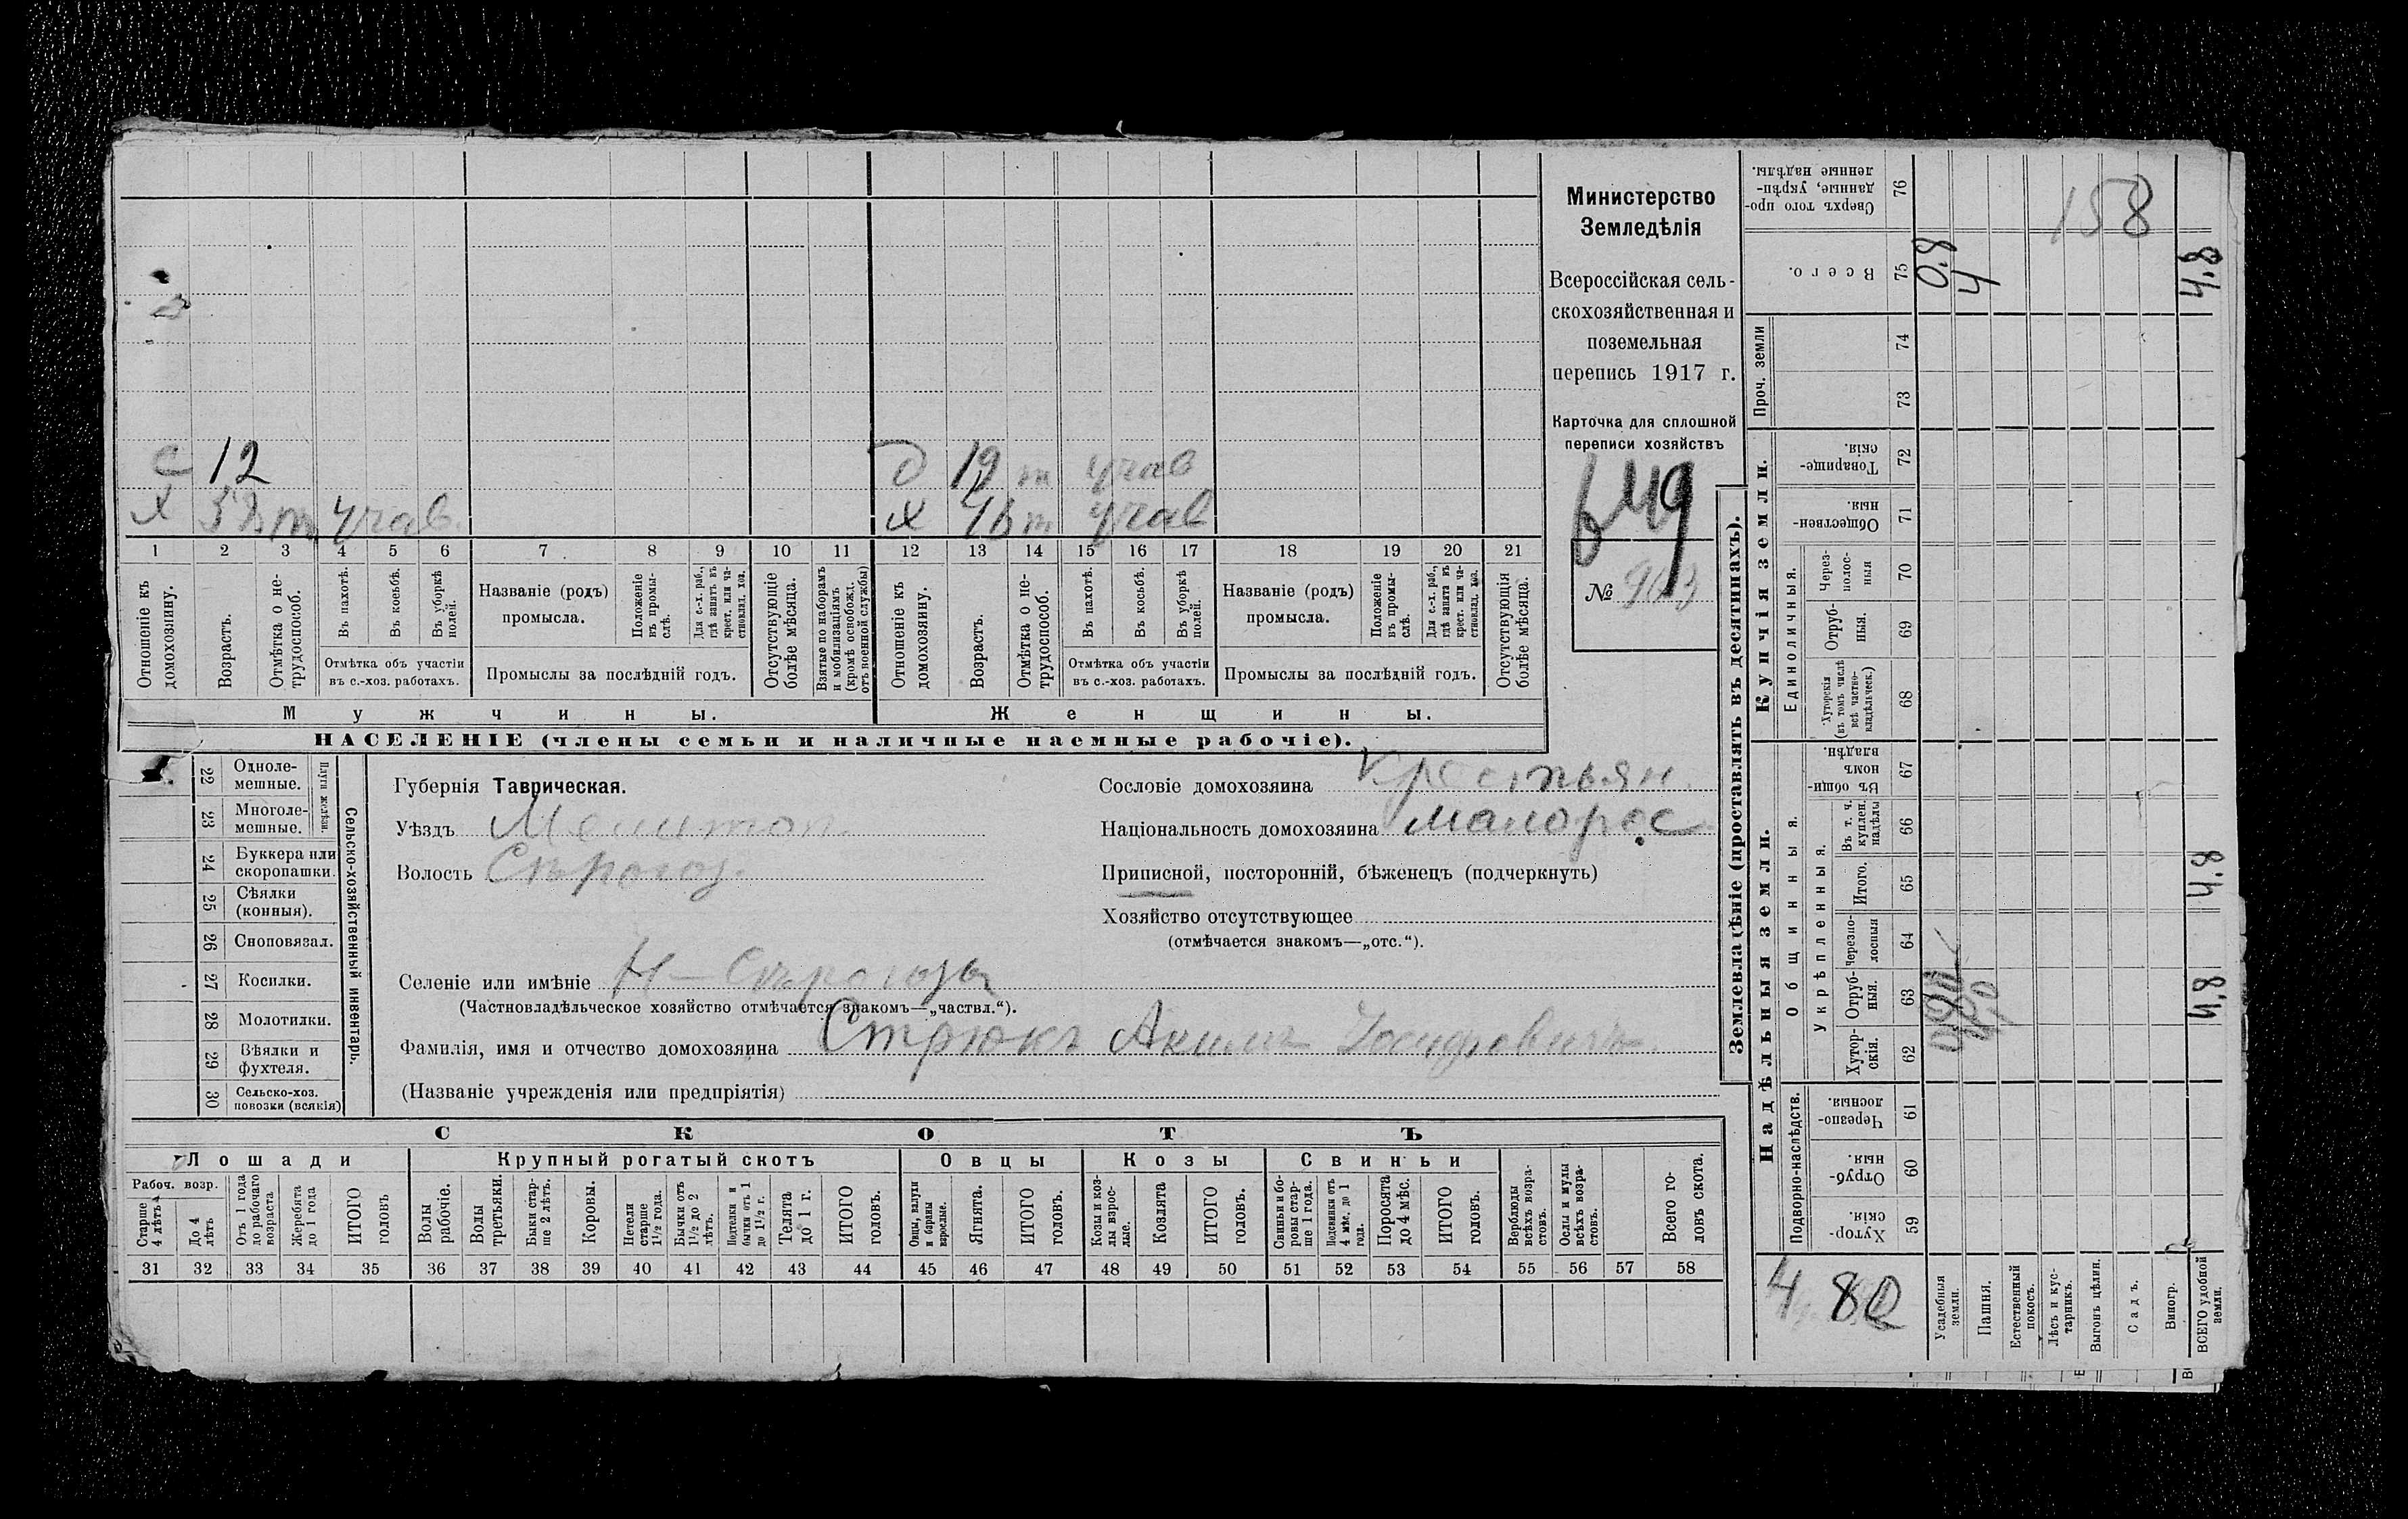 с 12 д 19 т учав
х 58 т учав. х 46 т учав
1 2 3 4 5 6 7 8 9 10 11 12 13 14 15 16 17 18 19 20 21
Отношеніе къ домохозяину.
Возрастъ.
Отмѣтка о не-
трудоспособ.
Въ пахотѣ.
Въ косьбѣ.
Въ уборкѣ
полей.
Отмѣтка объ участіи
въ с.-хоз. работахъ.
Названіе (родъ)
промысла.
Положеніе
въ промы-
слѣ.
Для с.-х. раб.,
гдѣ занятъ въ
крест. или ча-
стновлад. хоз.
Промыслы за послѣдній годъ.
Отсутствующіе
болѣе мѣсяца.
Взятые по наборамъ
и мобилизаціямъ
(кромѣ освобожд.
отъ военной службы)
Отношеніе къ
домохозяину.
Возрастъ.
Отмѣтка о не-
трудоспособ.
Въ пахотѣ.
Въ косьбѣ.
Въ уборкѣ
полей.
Отмѣтка объ участіи
въ с.-хоз. работахъ.
Названіе (родъ)
промысла.
Положеніе
въ промы-
слѣ.
Для с.-х. раб.,
гдѣ занята въ
крест. или ча-
стновлад. хоз.
Промыслы за послѣдній годъ.
Отсутствующія
болѣе мѣсяца.
Мужчины.
Женщины.
НАСЕЛЕНІЕ (члены семьи и наличные наемные рабочіе).
Министерство
Земледѣлія
Всероссійская сель-
скохозяйственная и
поземельная
перепись 1917 г.
Карточка для сплошной
переписи хозяйствъ
№
22 Одноле-
мешные.
23 Многоле-
мешные.
Плуги желѣзн.
24 Буккера или
скоропашки.
25 Сѣялки
(конныя).
26 Сноповязал.
27 Косилки.
28 Молотилки.
29 Вѣялки и
фухтеля.
30 Сельско-хоз.
повозки (всякія)
Сельско-хозяйственный инвентарь.
Губернія Таврическая.
Уѣздъ Мелитоп
Волость Сѣрогоз.
Селеніе или имѣніе Н-Сѣрогозы
(Частновладѣльческое хозяйство отмѣчается знакомъ—„частвл.“).
Фамилія, имя и отчество домохозяина Стрюкъ Акимъ Іосифовичъ
(Названіе учрежденія или предпріятія)
Сословіе домохозяина Крестьян.
Національность домохозяина малорос
Приписной, посторонній, бѣженецъ (подчеркнуть)
Хозяйство отсутствующее
(отмѣчается знакомъ—„отс.“).
СКОТЪ
Лошади
Крупный рогатый скотъ
Овцы
Козы
Свиньи
Рабоч. возр.
Старше
4 лѣтъ
До 4
лѣтъ
Отъ 1 года
до рабочаго
возраста
Жеребята
до 1 года
ИТОГО
головъ
Волы
рабочіе.
Волы
третьяки.
Быки стар-
ше 2 лѣтъ.
Коровы.
Нетели
старше
1½ года.
Бычки отъ
1½ до 2
лѣтъ.
Подтелки и
бычки отъ 1
до 1½ г.
Телята
до 1 г.
ИТОГО
головъ.
Овцы, валухи
и бараны
взрослые.
Ягнята.
ИТОГО
головъ.
Козы и коз-
лы взрос-
лые.
Козлята
ИТОГО
головъ.
Свиньи и бо-
ровы стар-
ше 1 года.
Подсвинки отъ
4 мѣс. до 1
года.
Поросята
до 4 мѣс.
ИТОГО
головъ.
Верблюды
всѣхъ возра-
стовъ.
Ослы и мулы
всѣхъ возра-
стовъ.
Всего го-
ловъ скота.
31 32 33 34 35 36 37 38 39 40 41 42 43 44 45 46 47 48 49 50 51 52 53 54 55 56 57 58
Землевладѣніе (проставлять въ десятинахъ).
Надѣльныя земли.
Купчія земли.
Проч. земли
Подворно-наслѣдств.
Общинныя.
Укрѣпленныя.
Единоличныя.
Хутор-
скія. 59
Отруб-
ныя. 60
Черезпо-
лосныя. 61
Хутор-
скія. 62
Отруб-
ныя. 63
Черезпо-
лосныя 64
Итого. 65
Въ т. ч.
куплен.
надѣлы 66
Въ общин-
номъ
владѣн. 67
Хуторскія
(въ томъ числѣ
всѣ частно-
владѣльческ.) 68
Отруб-
ныя. 69
Через-
полос-
ныя 70
Обществен-
ныя. 71
Товарище-
скія. 72
73
74
Всего. 75
Сверхъ того про-
данные, укрѣп-
ленные надѣлы. 76
158
0,8
4
4,8
4,8
4,8
4 80
Усадебныя
земли.
Пашня.
Естественный
покосъ.
Лѣсъ и кус-
тарникъ.
Выгонъ цѣлин.
Садъ.
Виногр.
ВСЕГО удобной
земли.